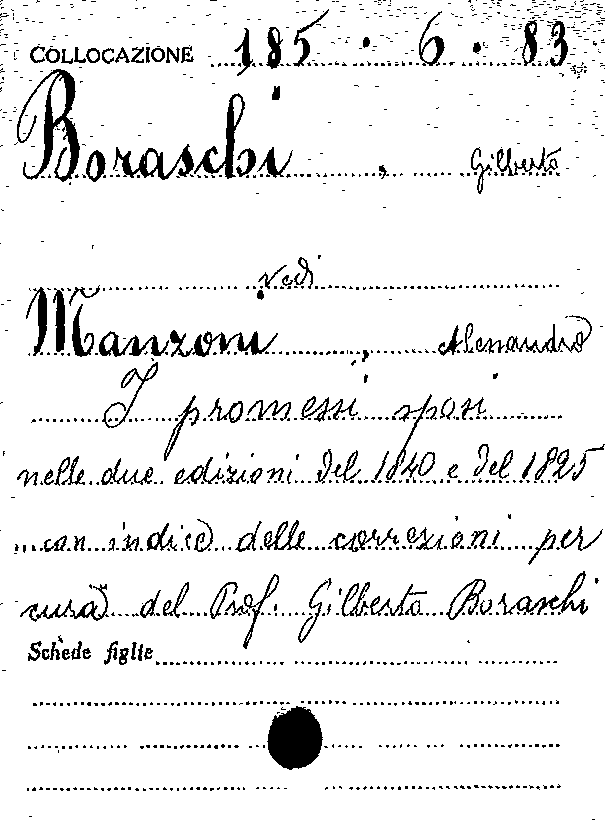 COLLOCAZIONE 185 · 6 · 83
Boraschi, Gilberto
vedi
Manzoni, Alessandro
I promessi sposi
nelle due edizioni del 1840 e del 1825
con indice delle correzioni per
cura del Prof. Gilberto Boraschi
Schede figlie